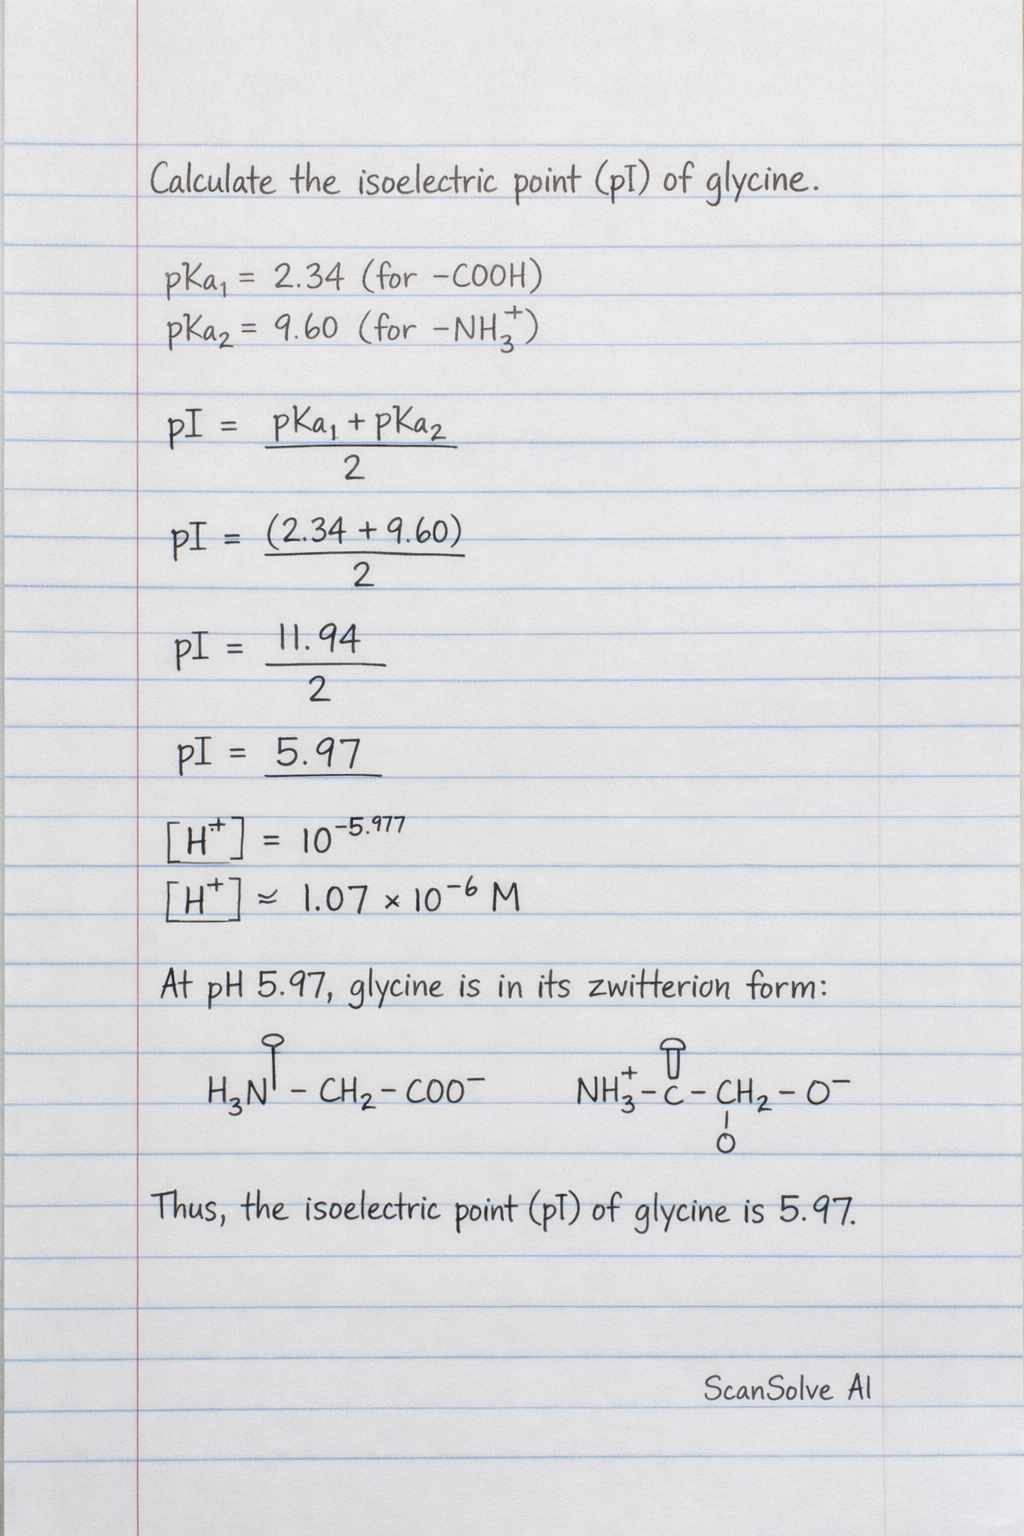 Calculate the isoelectric point (pI) of glycine.
pKa₁ = 2.34 (for -COOH)
pKa₂ = 9.60 (for -NH₃⁺)
pI = pKa₁ + pKa₂
2
pI = (2.34 + 9.60)
2
pI = 11.94
2
pI = 5.97
[H⁺] = 10⁻⁵·⁹⁷⁷
[H⁺] ≈ 1.07 × 10⁻⁶ M
At pH 5.97, glycine is in its zwitterion form:
H₃N - CH₂ - COO⁻ NH₃⁺ - C - CH₂ - O⁻
O
Thus, the isoelectric point (pI) of glycine is 5.97.
ScanSolve AI